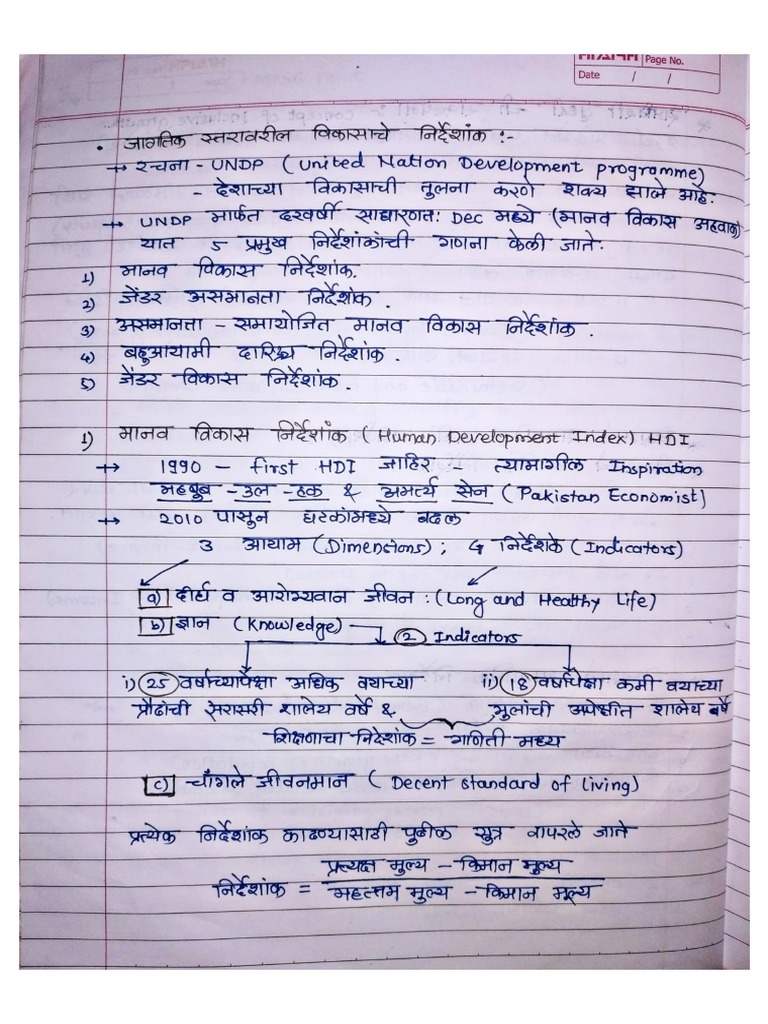 Page No.
Date / /
• जागतिक स्तरावरील विकासाचे निर्देशांक :-
→ रचना - UNDP (United Nation Development programme)
- देशाच्या विकासाची तुलना करणे शक्य झाले आहे.
→ UNDP मार्फत दरवर्षी साधारणत: Dec मध्ये (मानव विकास अहवाल)
यात 5 प्रमुख निर्देशांकांची गणना केली जाते.
1) मानव विकास निर्देशांक.
2) जेंडर असमानता निर्देशांक.
3) असमानता - समायोजित मानव विकास निर्देशांक.
4) बहुआयामी दारिद्र्य निर्देशांक.
5) जेंडर विकास निर्देशांक.
1) मानव विकास निर्देशांक (Human Development Index) HDI
→ 1990 - first HDI जाहिर :- त्यामागील Inspiration
महबुब - उल - हक & अमर्त्य सेन (Pakistan Economist)
→ 2010 पासुन घटकांमध्ये बदल
3 आयाम (Dimensions) ; 4 निर्देशके (Indicators)
a) दीर्घ व आरोग्यवान जीवन : (Long and Healthy Life)
b) ज्ञान (Knowledge) → 2 Indicators
i) 25 वर्षाच्यापेक्षा अधिक वयाच्या ii) 18 वर्षापेक्षा कमी वयाच्या
प्रौढांची सरासरी शालेय वर्षे & मुलांची अपेक्षीत शालेय वर्षे
शिक्षणाचा निदेशांक = गणिती मध्य
c) चाँगले जीवनमान (Decent standard of living)
प्रत्येक निर्देशांक काढण्यासाठी पुढील सुत्र वापरले जाते
प्रत्यक्ष मुल्य - किमान मुल्य
निर्देशांक = महत्तम मुल्य - किमान मूल्य